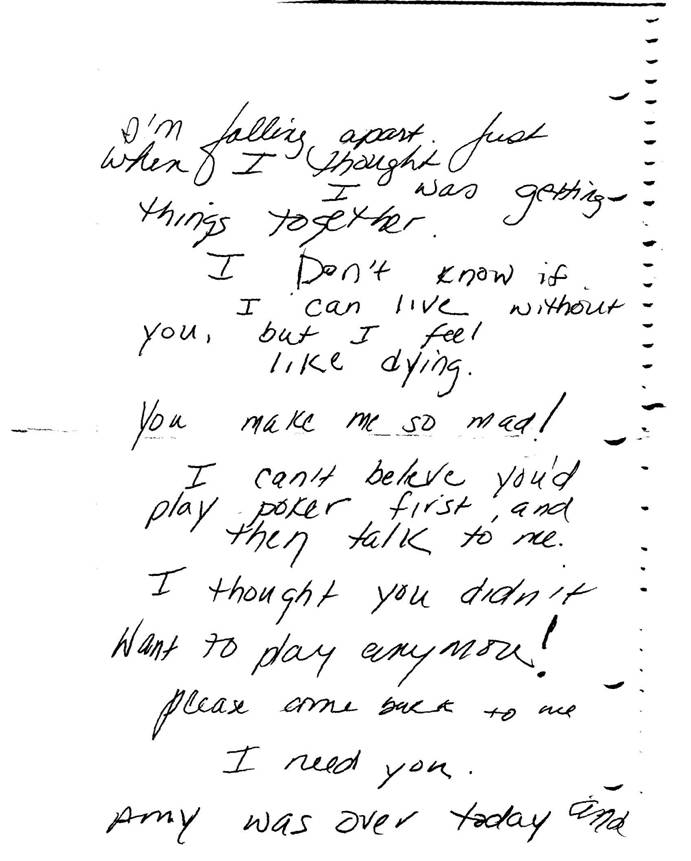 I'm falling apart. Just
when I thought
I was getting
things together.
I Don't know if
I can live without
you, but I feel
like dying.
You make me so mad!
I can't beleve you'd
play poker first, and
then talk to me.
I thought you didn't
Want to play anymore!
please come back to me
I need you.
Amy was over today and